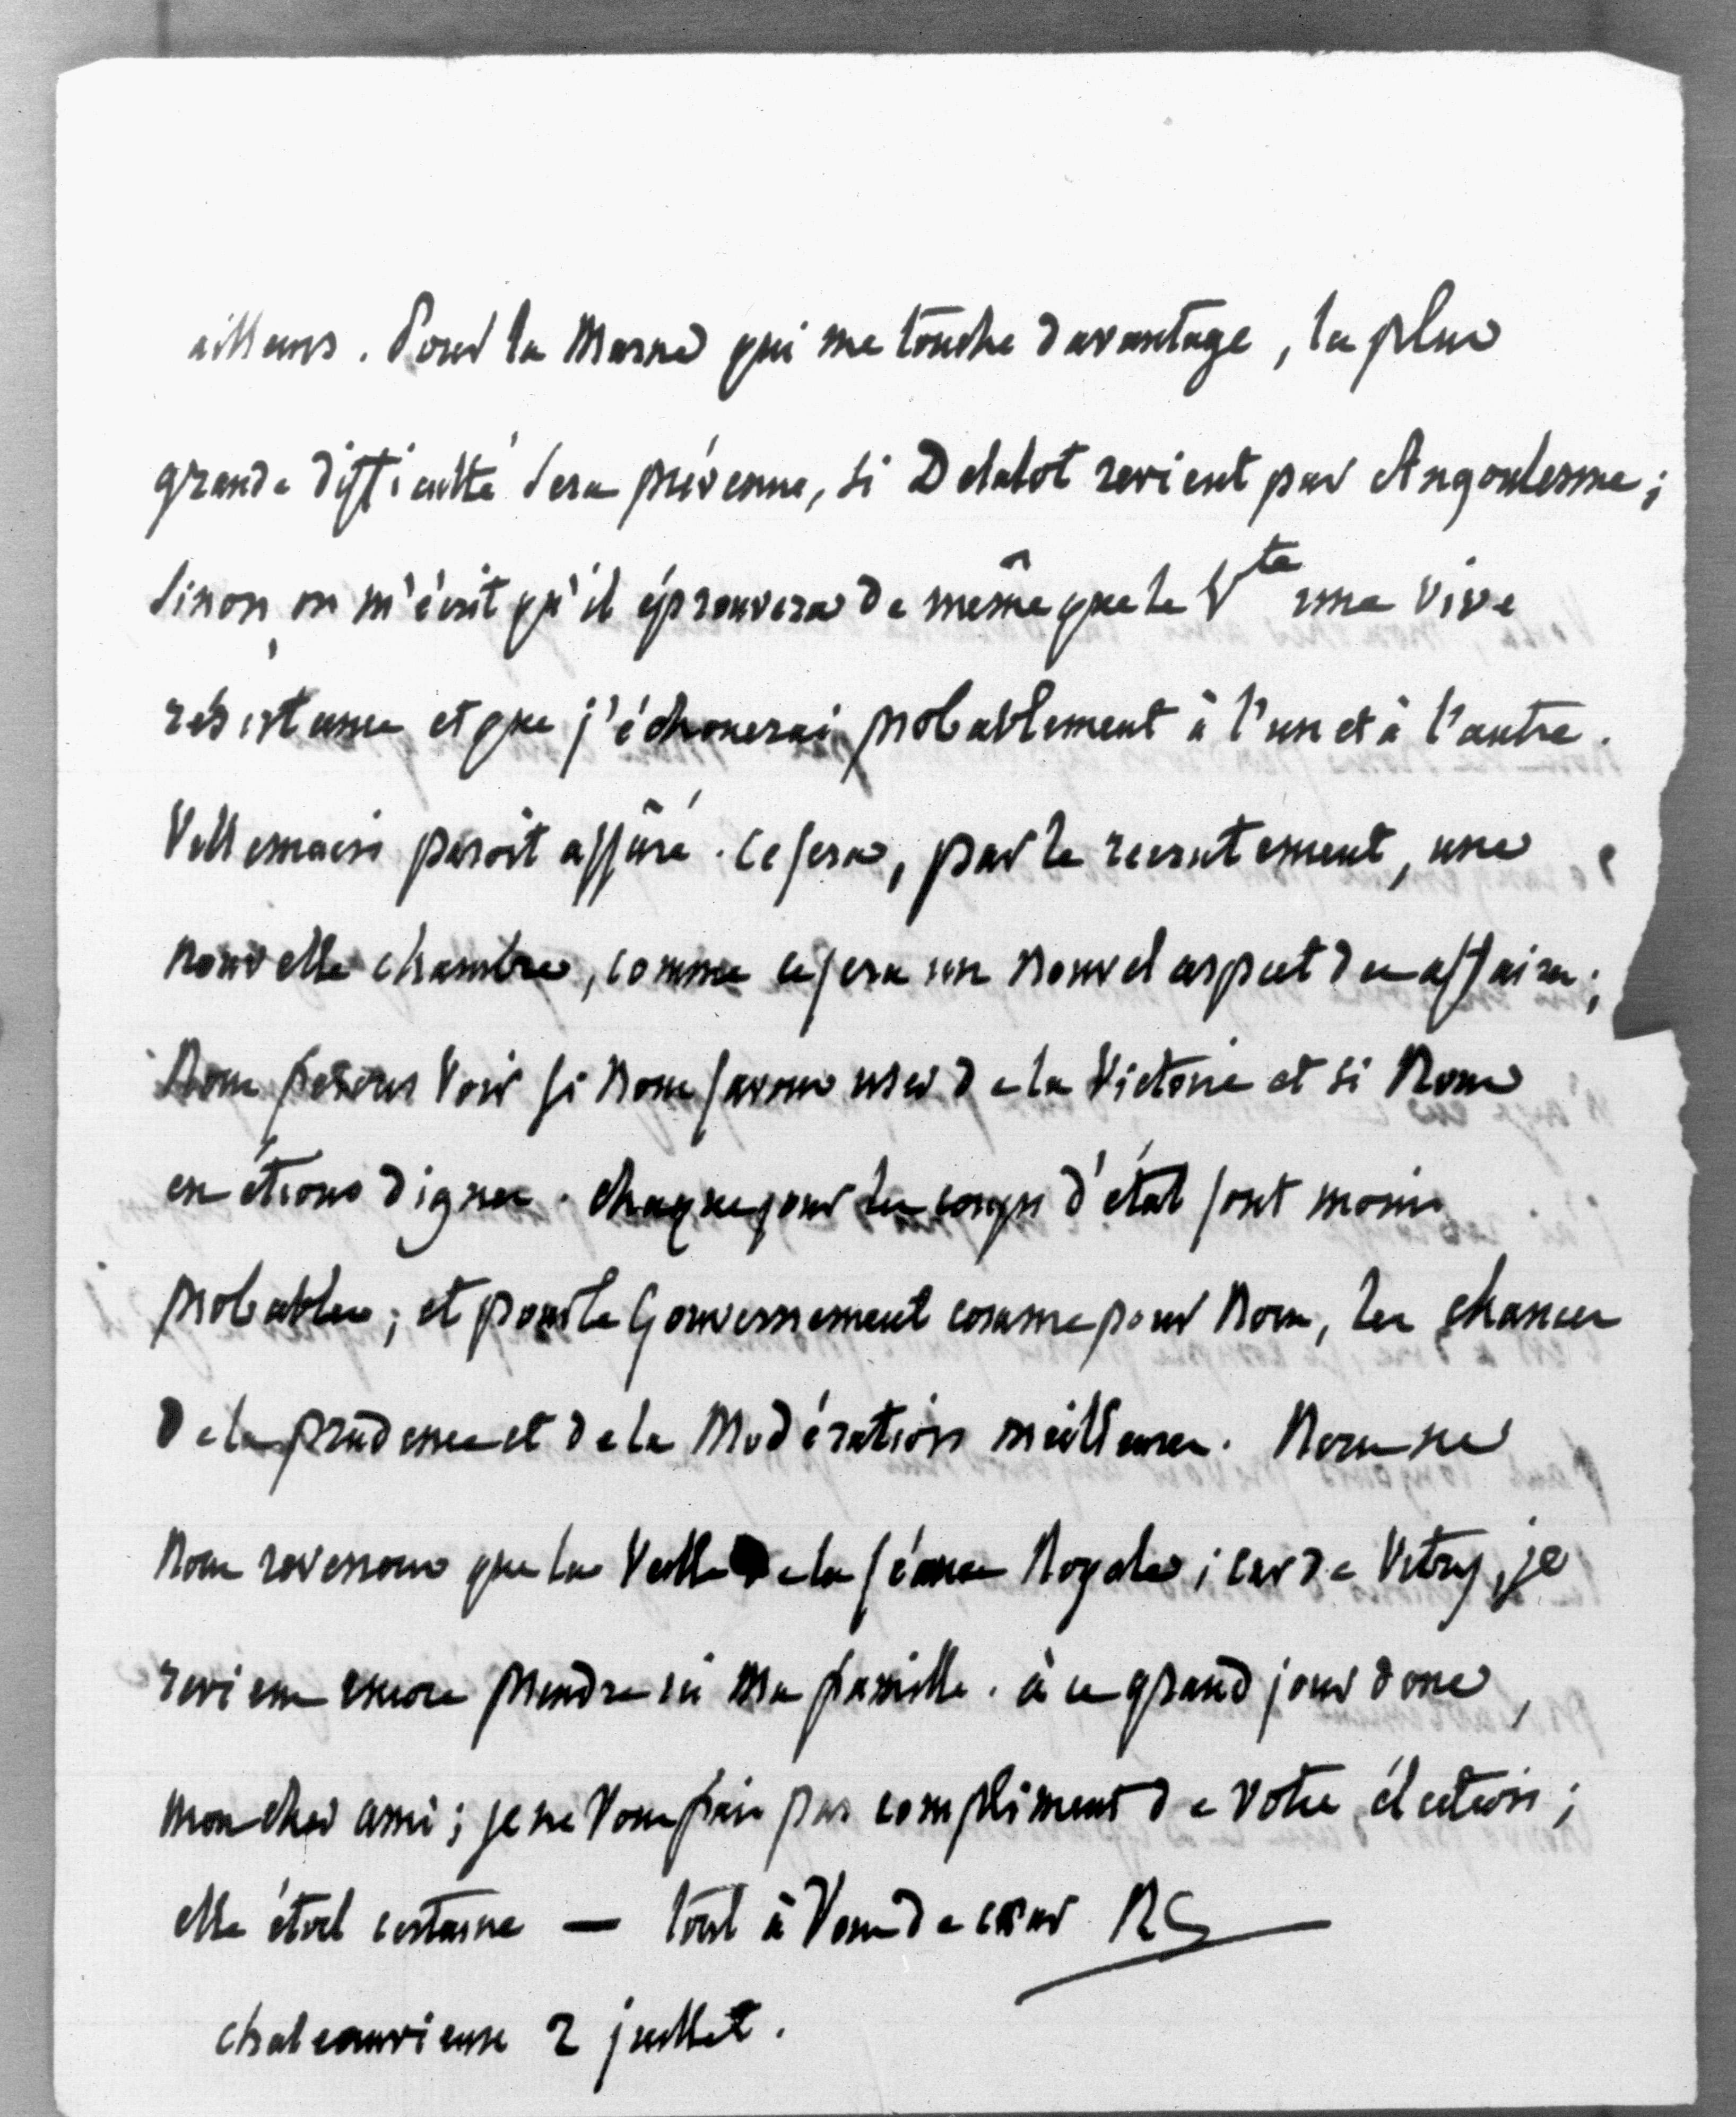 ailleurs. Pour la Marne qui me touche davantage, la plus
grande difficulté sera prévenue, si Delalot revient par Angoulesme;
sinon, on m'écrit qu'il éprouvera de même que le Vte une vive
résistance et que j'échouerai probablement à l'un et à l'autre.
Villemain paroit assuré. ce sera, par le recrutement, une
nouvelle chambre, comme ce sera un nouvel aspect des affaires;
Nous ferons voir si nous savons user de la Victoire et si Nous
en étions dignes. chaque jour les coups d'état sont moins
probables; et pour le Gouvernement comme pour Nous, les chances
de la prudence et de la Modération meilleures. Nous ne
Nous reverrons que la Veille de la séance Royale; car de Vitry, je
reviens encore prendre ici Ma famille. à ce grand jour donc,
mon cher ami; je ne Vous fais pas compliment de votre élection;
elle étoit certaine — tout à Vous de cœur RC
chateauvieux 2 juillet.